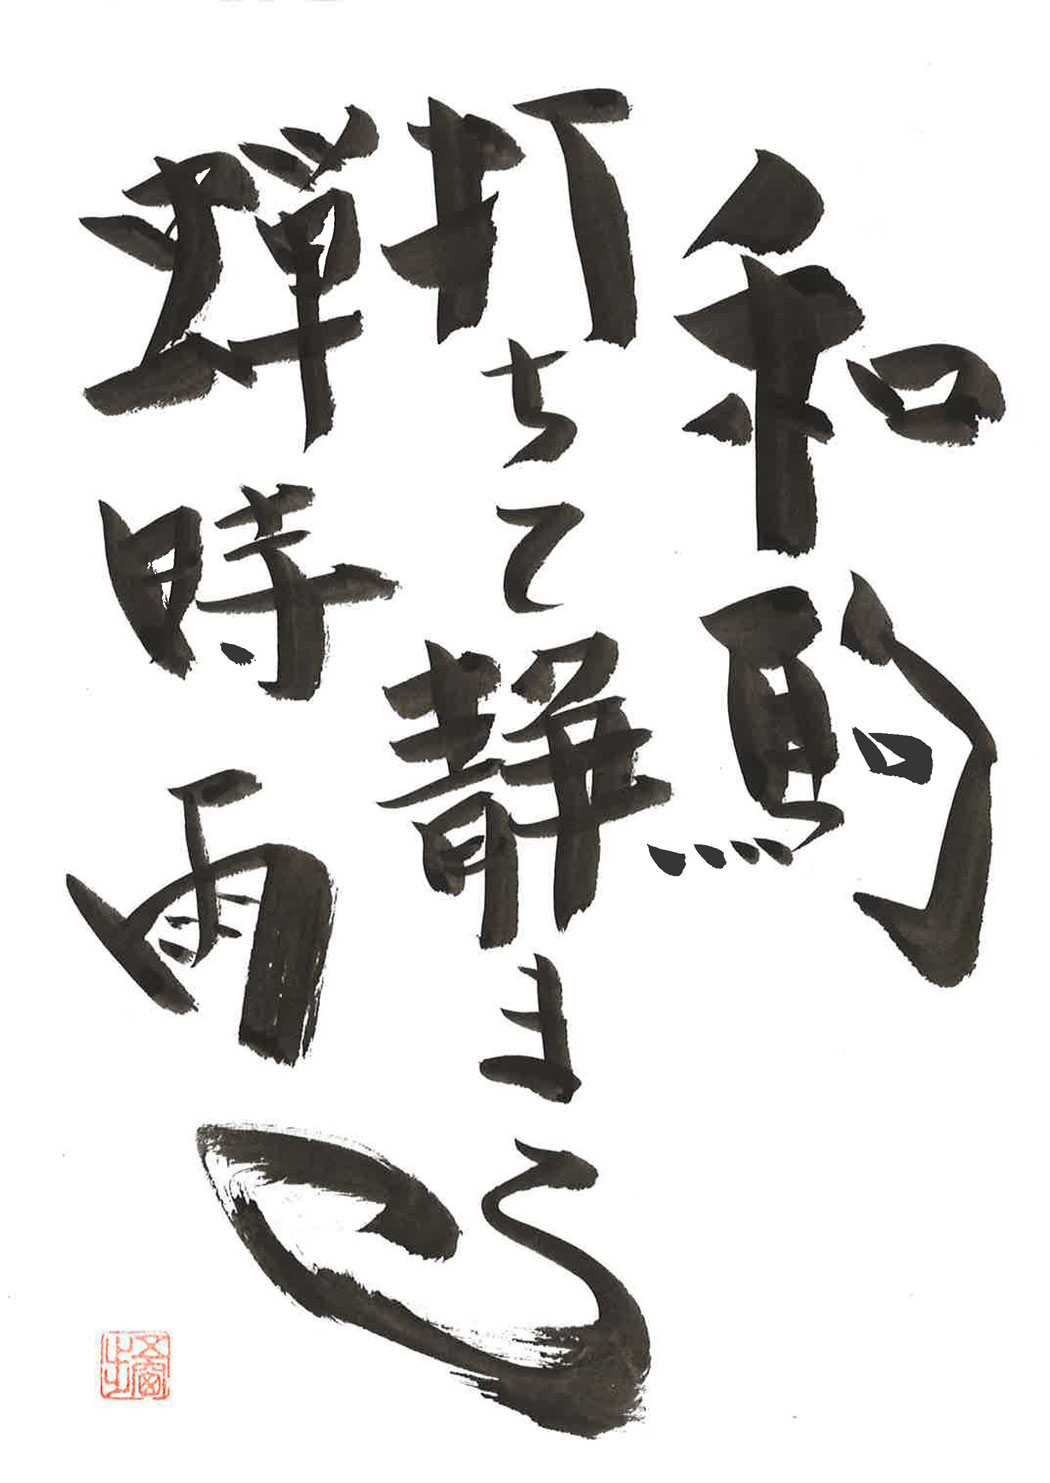 和駒
打ちて静まる
蝉時雨